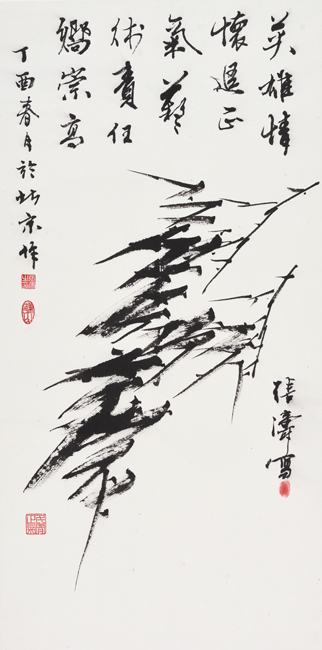 英雄情
懷進正
氣藝
術責任
崇高
丁酉春月於北京作
張濤寫